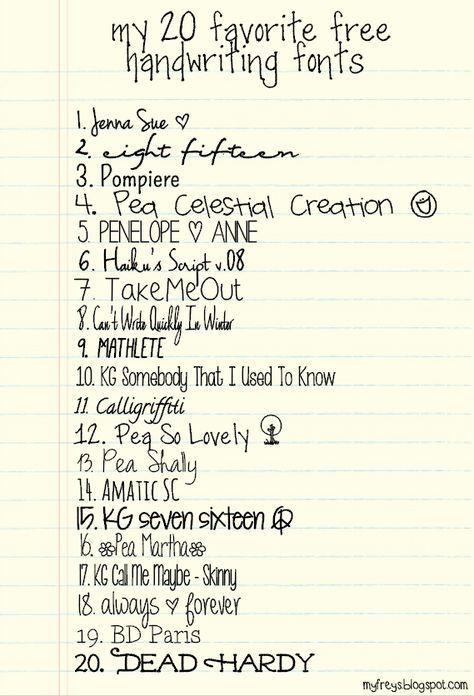 my 20 favorite free
handwriting fonts
1. Jenna Sue ♡
2. eight fifteen
3. Pompiere
4. Pea Celestial Creation ☺
5. PENELOPE ♡ ANNE
6. Haiku's Script v.08
7. TakeMeOut
8. Can't Write Quickly In Winter
9. MATHLETE
10. KG Somebody That I Used To Know
11. Calligriffiti
12. Pea So Lovely
13. Pea Shally
14. AMATIC SC
15. KG seven sixteen
16. Pea Martha
17. KG Call Me Maybe - Skinny
18. always ♡ forever
19. BD Paris
20. DEAD HARDY
myfreys.blogspot.com